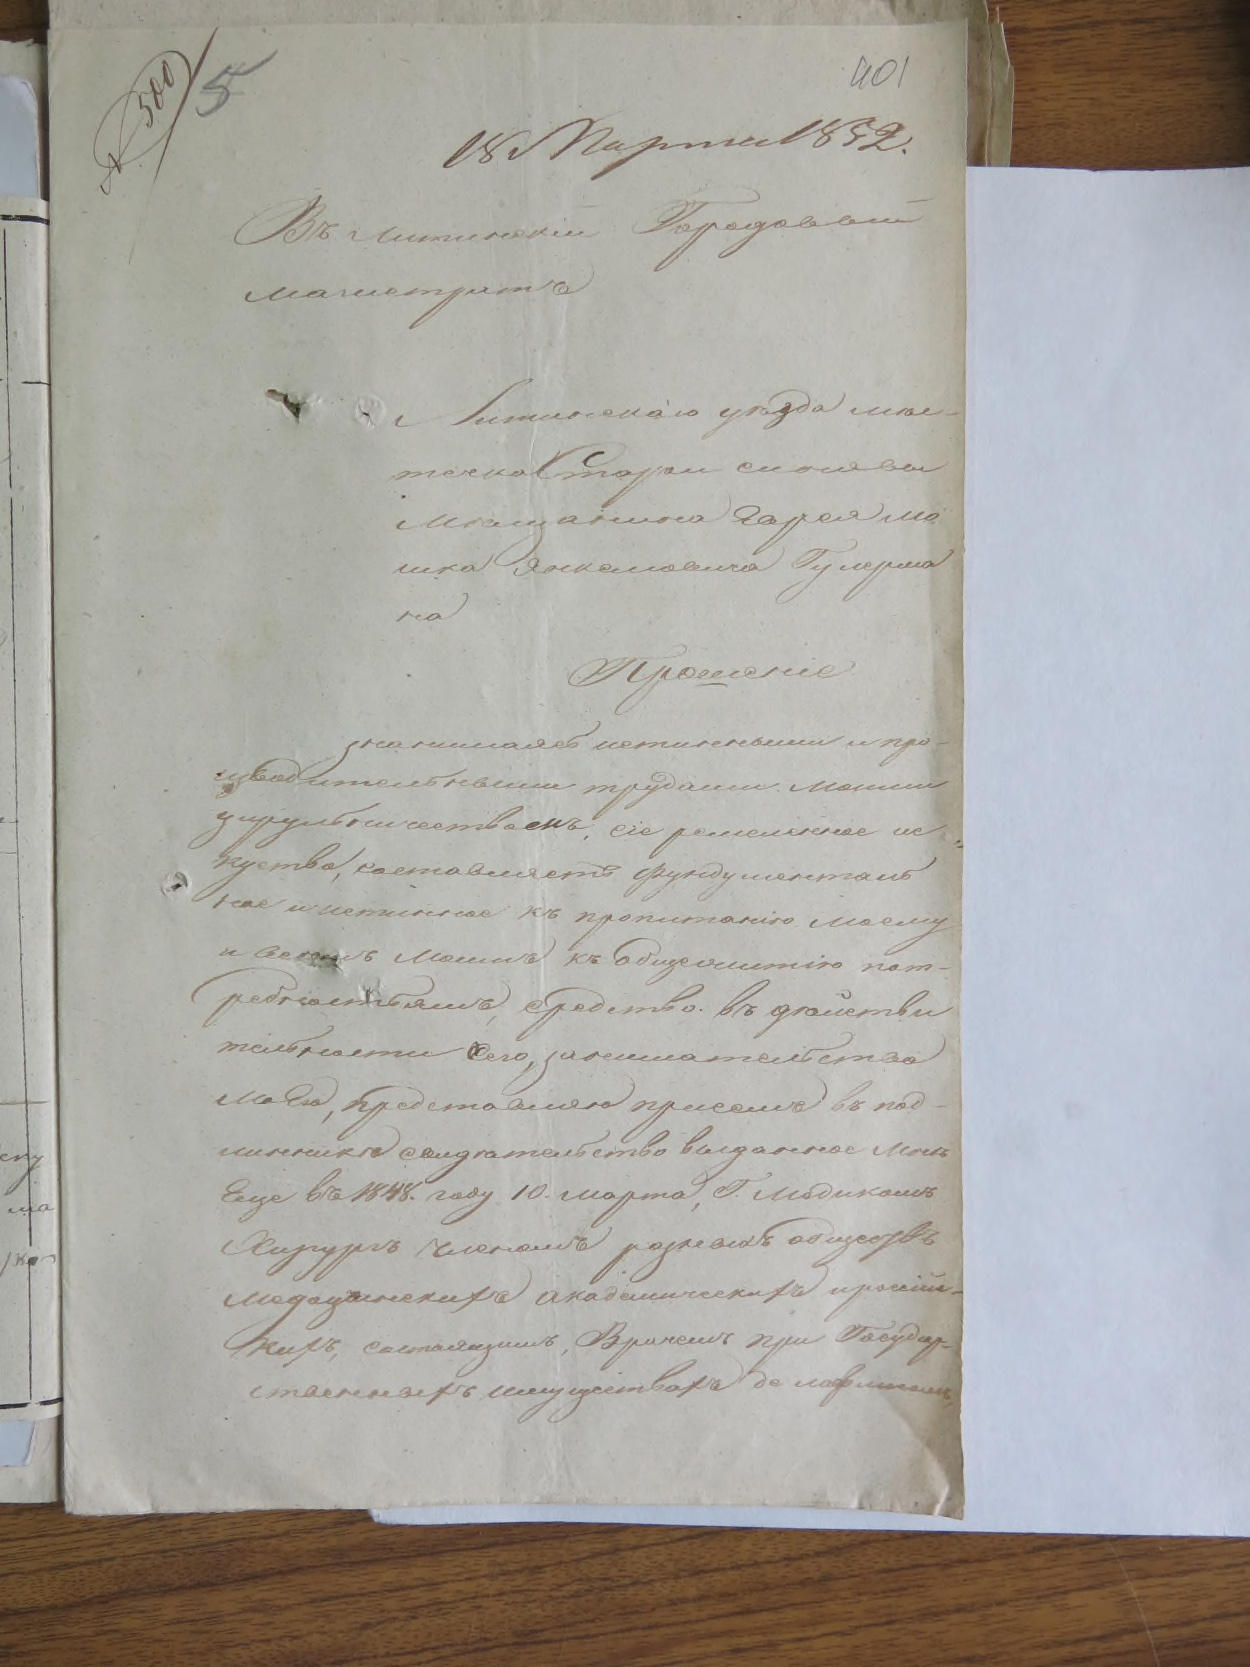 № 500
5
401
18 Марта 1852.
Въ Литинскій Городовый
магистратъ
Литинскаго уѣзда мѣс-
течка Старой синявы
Мѣщанина Гарея Мо
шка Янкелевича Гулерма
на
Прошеніе
Знанимаясь истинными и про-
изводительными трудами моими
цирульничествомъ, сіе ремесленное ис
куство, составляетъ фундументаль
ное и истинное къ пропитанію моему
и всемъ моимъ къ общежитію пот-
ребностьямъ, средство. въ дѣйстви
тельности сего, занимательства
моего, представляю присемъ въ под-
линникѣ свидѣтельство выданное мнѣ
Еще въ 1848. году 10. марта, Г. Медикомъ
Хирургъ членомъ разныхъ обществъ
медецинскихъ академическихъ
состоящимъ, Врачемъ при Государ-
ственныхъ имуществахъ де